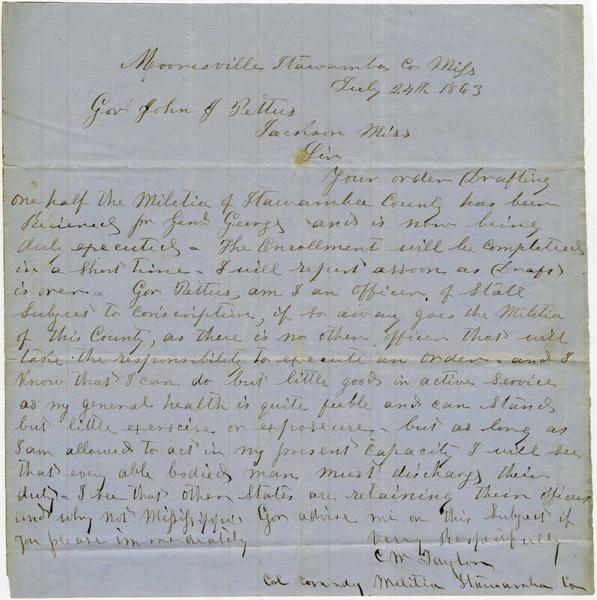 Mooresville Itawamba Co Miss
July 24th 1863
Gov John J Pettus
Jackson Miss
Sir
Your order Drafting
one half the Militia of Itawamba County has been
Recieved fr Genl George and is now being
duly executed - The Enrollment will be completed
in a short time - I will report as soon as Draft
is over - Gov Pettus, am I an officer of State
Subject to conscription, if so away goes the Militia
of this County, as there is no other officer that will
take the responsibility to execute an order - and I
Know that I can do but little good in active Service
as my general health is quite feeble and can Stand
but little exercise or exposure - but as long as
I am allowed to act in my present capacity I will see
that every able bodied man must discharge their
duty - I see that other States are retaining their officers
and why not Mississippi. Gov advise me on this Subject if
you please immediately very Respectfully
C W Taylor
Col Comndg Militia Itawamba Co